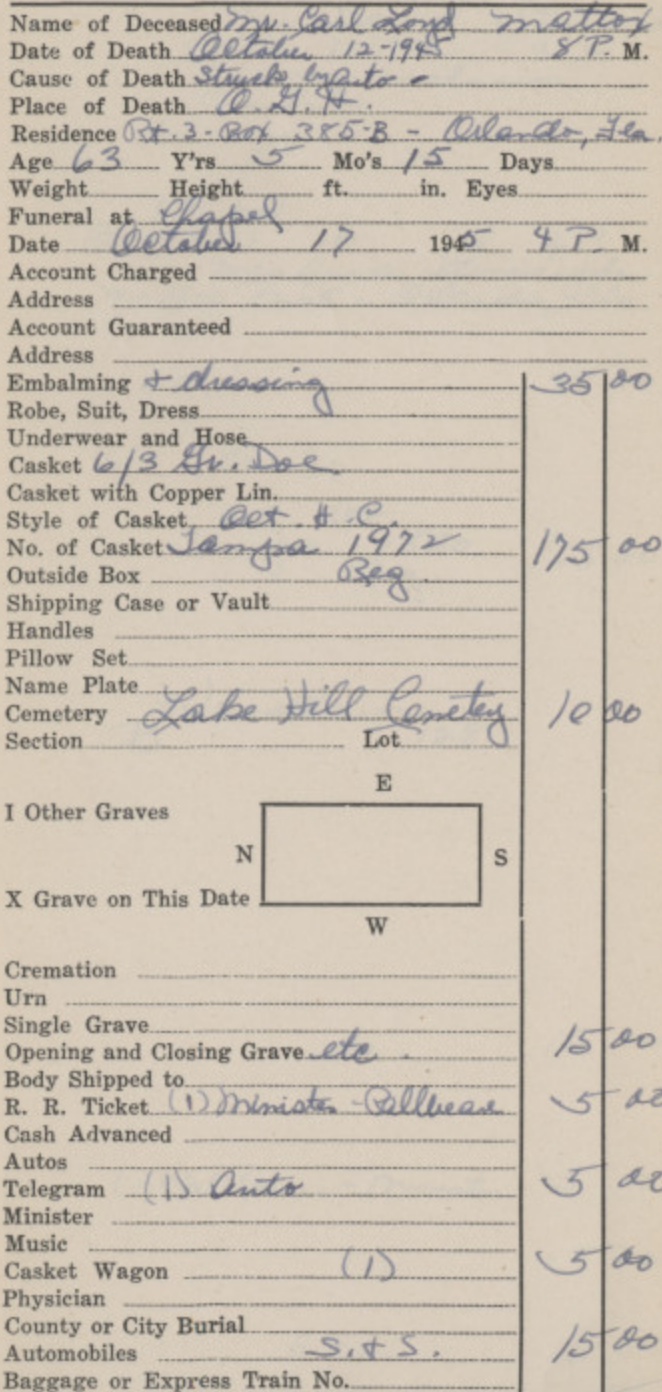 Name of Deceased Mr. Carl Loyd Mattox
Date of Death October 12-1945 8 P. M.
Cause of Death Struck by auto -
Place of Death O. G. H.
Residence Rt. 3 - Box 385-B - Orlando, Fla.
Age 63 Y'rs 5 Mo's 15 Days
Weight Height ft. in. Eyes
Funeral at Chapel
Date October 17 1945 4 P. M.
Account Charged
Address
Account Guaranteed
Address
Embalming + dressing 35 00
Robe, Suit, Dress
Underwear and Hose
Casket 6/3 Gr. Doe
Casket with Copper Lin.
Style of Casket Oct. H. C.
No. of Casket Tampa 1972 175 00
Outside Box Reg.
Shipping Case or Vault
Handles
Pillow Set
Name Plate
Cemetery Lake Hill Cemetey 10 00
Section Lot
E
I Other Graves
N S
X Grave on This Date
W
Cremation
Urn
Single Grave
Opening and Closing Grave etc. 15 00
Body Shipped to
R. R. Ticket (1) Minister - Pallbear 5 00
Cash Advanced
Autos
Telegram (1) Auto 5 00
Minister
Music
Casket Wagon (1) 5 00
Physician
County or City Burial
Automobiles S. & S. 15 00
Baggage or Express Train No.